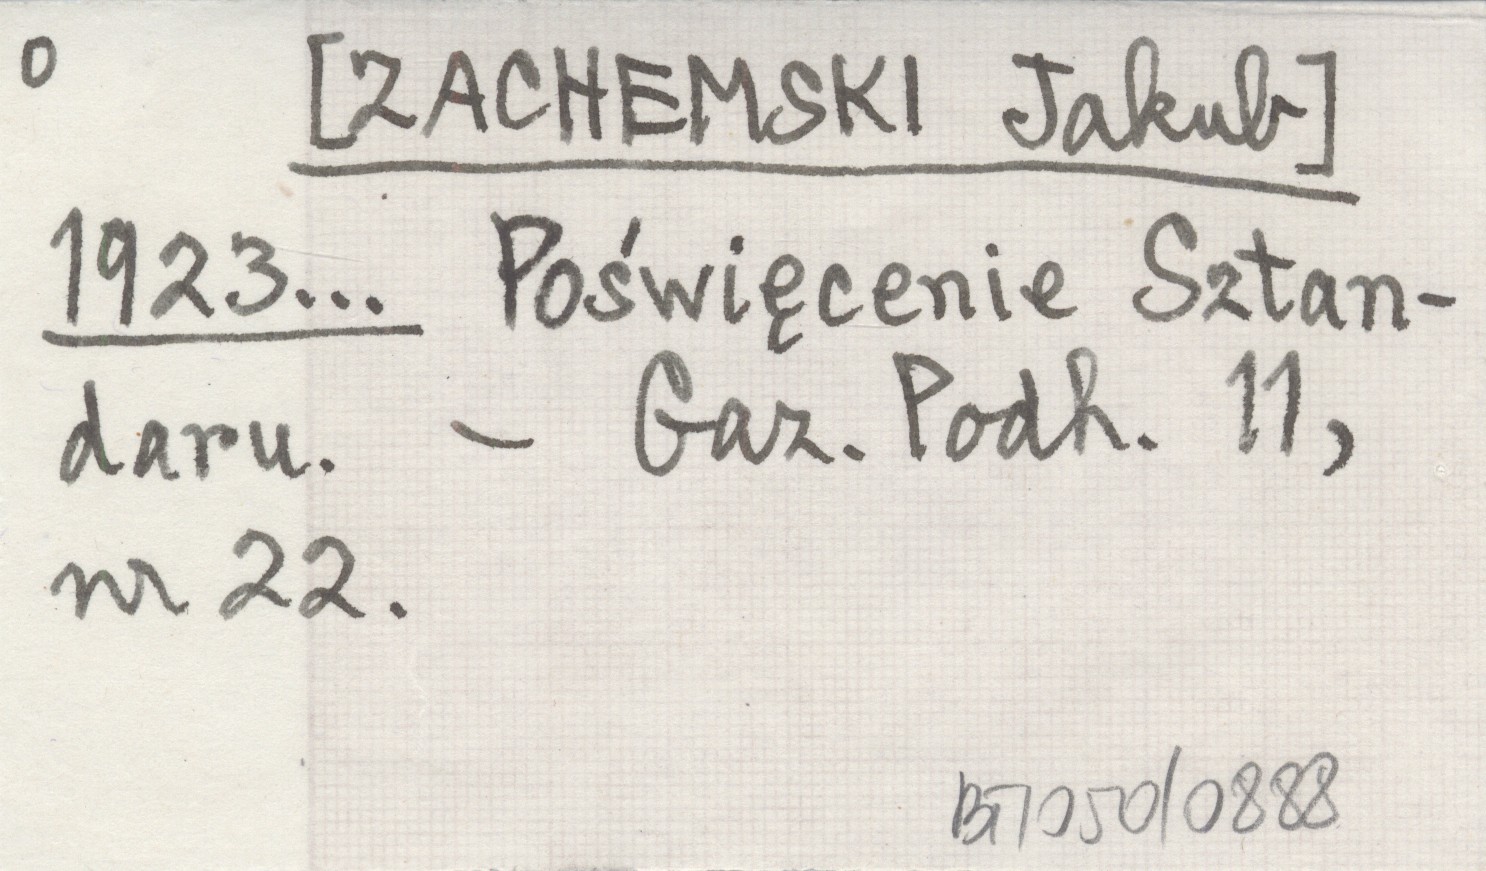 o [ZACHEMSKI Jakub]
1923... Poświęcenie Sztan-
daru. - Gaz. Podh. 11,
nr 22.
BT1050/0888